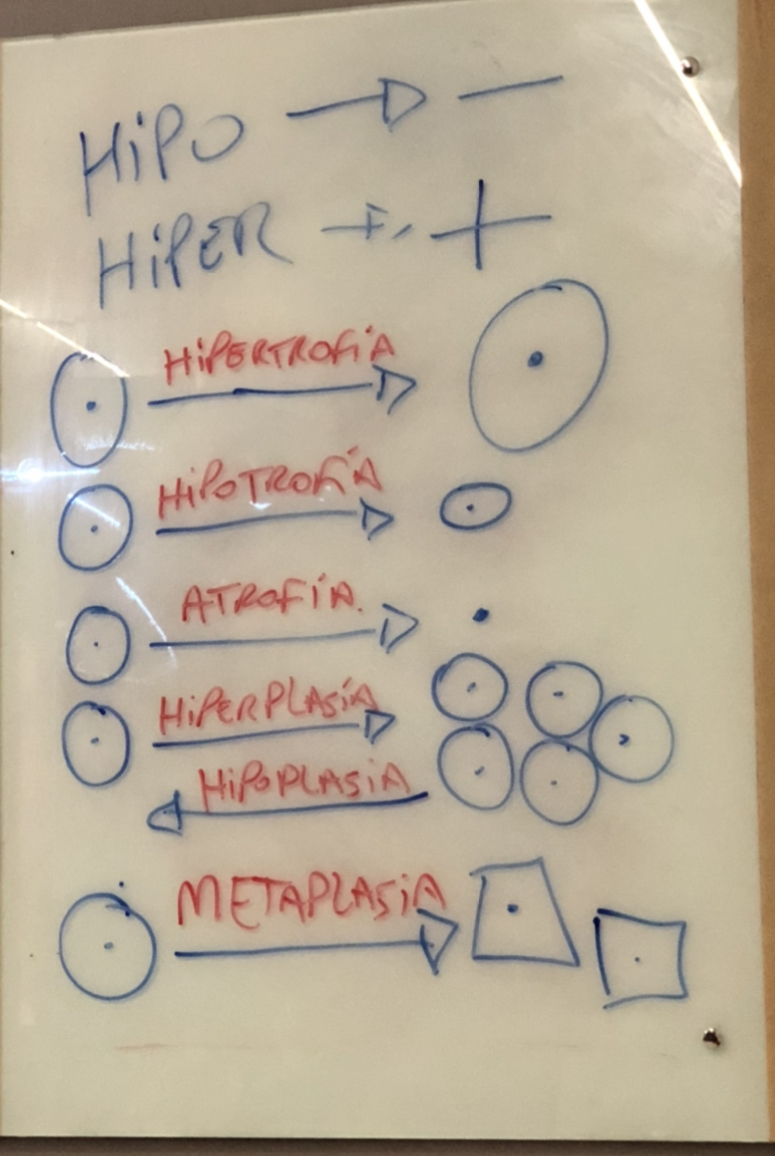 HiPO → −
HiPER → +
HiPERTROFíA
HiPOTROFíA
ATROFíA.
HiPERPLASíA
HiPOPLASiA
METAPLASiA